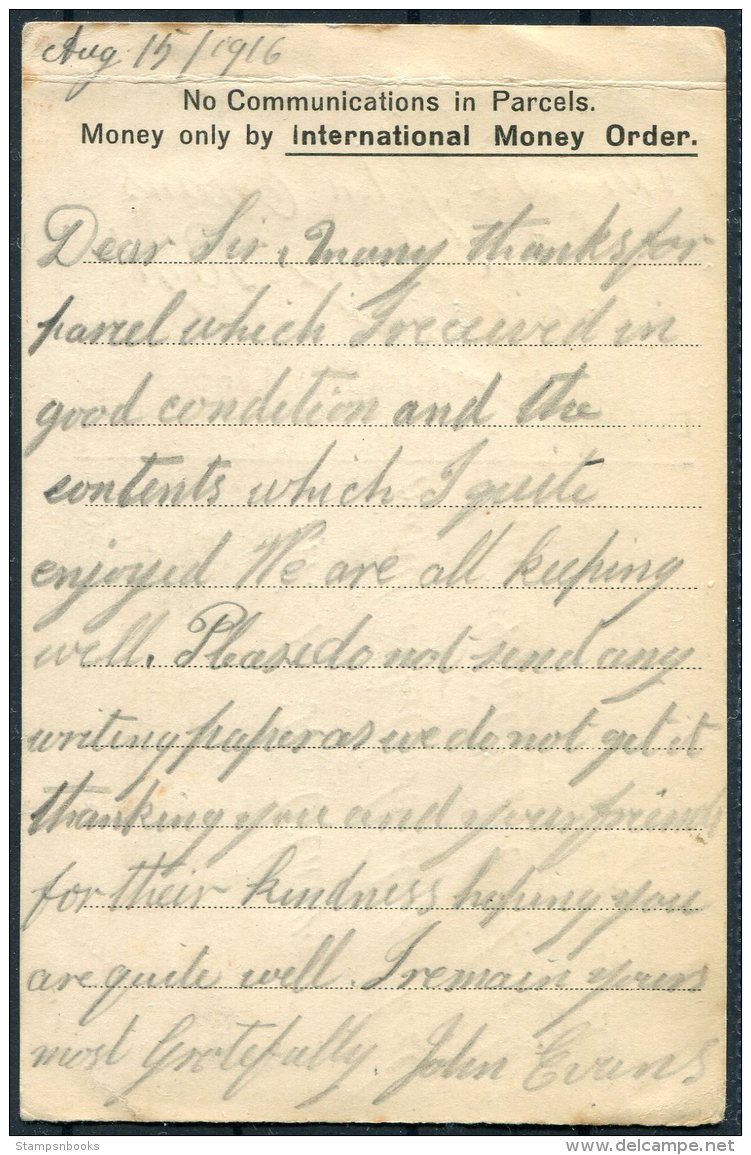 Aug 15/1916
No Communications in Parcels.
Money only by International Money Order.
Dear Sir, Many thanks for
parcel which I received in
good condition and the
contents which I quite
enjoyed We are all keeping
well. Please do not send any
writing paper as we do not get it
thanking you and your friends
for their kindness hoping you
are quite well. I remain yours
most Gratefully John Evans
Stampsnbooks
delcampe.net